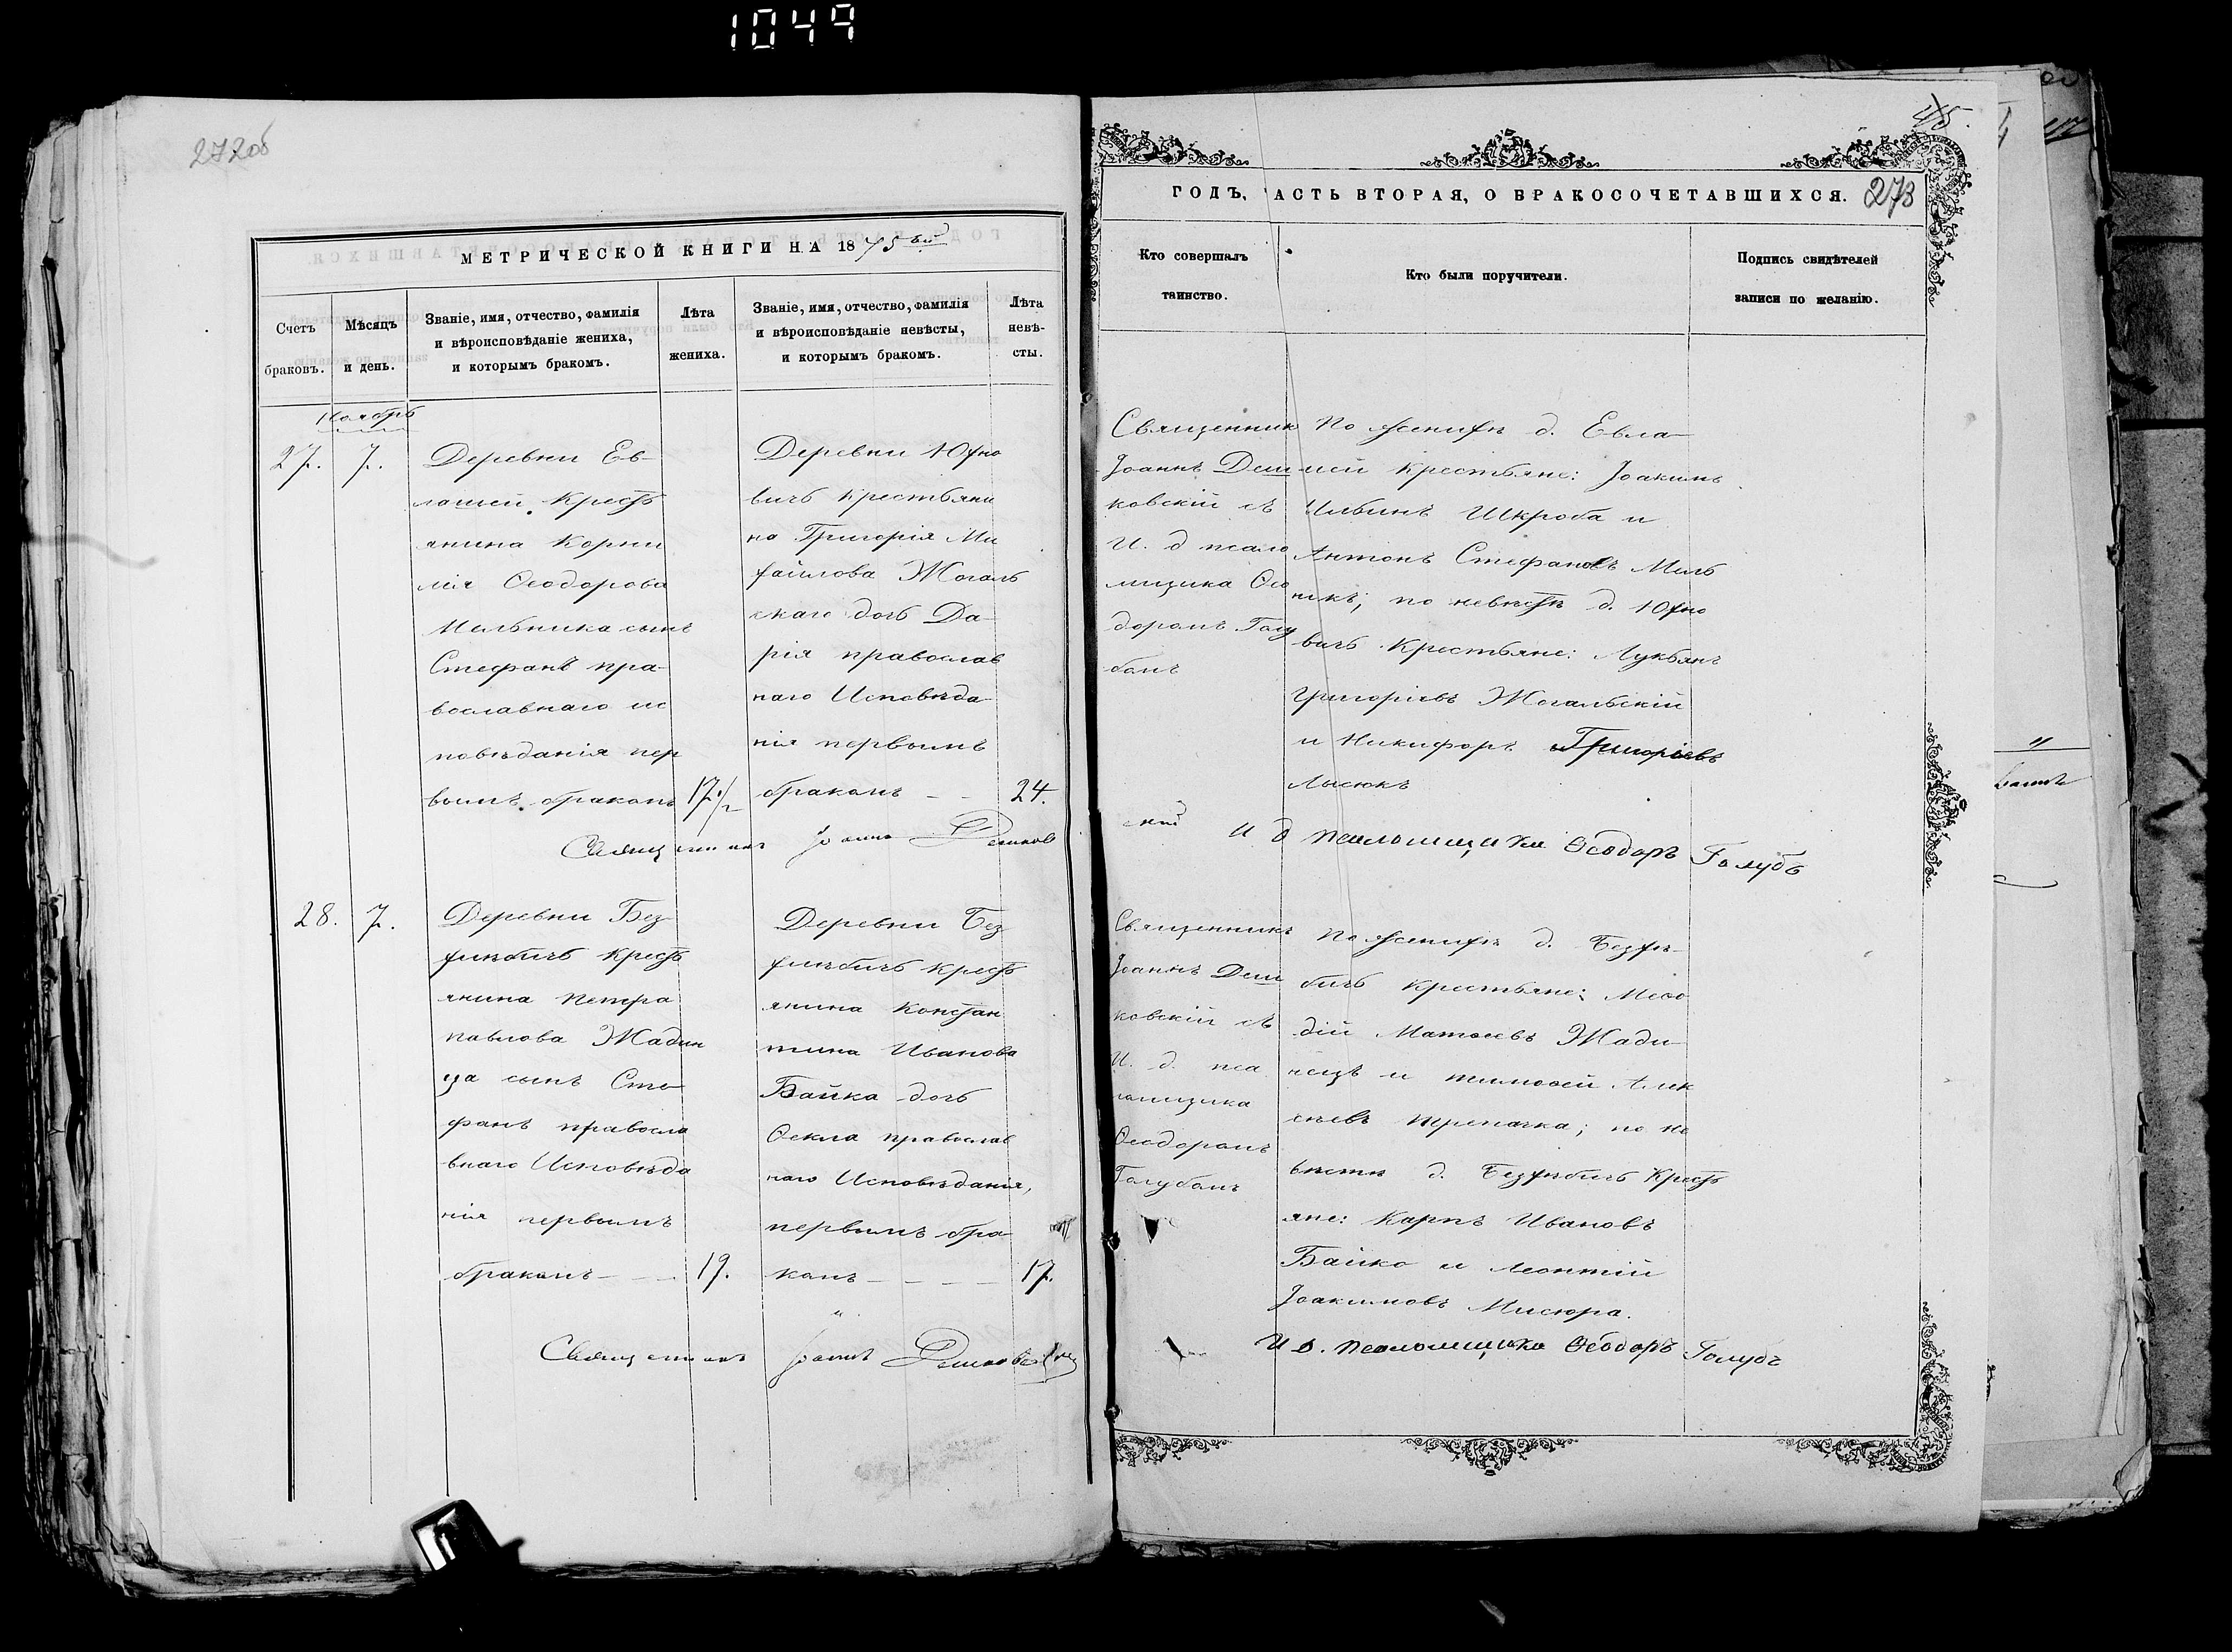 1049
272об
МЕТРИЧЕСКОЙ КНИГИ НА 1875ый
Счетъ
браковъ.
Мѣсяцъ
и день.
Званіе, имя, отчество, фамилія
и вѣроисповѣданіе жениха,
и которымъ бракомъ.
Лѣта
жениха.
Званіе, имя, отчество, фамилія
и вѣроисповѣданіе невѣсты,
и которымъ бракомъ.
Лѣта
невѣ-
сты.
Ноябрь
27.
7.
Деревни Ев-
лашей Крестъ
янина Корни
лія Ѳеодорова
Мельника сынъ
Стефанъ пра-
вославнаго ис
повѣданія пер
вымъ бракомъ
17 1/2
Деревни Юхно
вичъ крестьяни
на Григорія Ми
хайлова Жогаль
скаго дочь Да-
рія православ
наго Исповѣда-
нія первымъ
бракомъ - -
24.
Священникъ Іоаннъ Демков
28.
7.
Деревни Без-
хлѣбичъ Крестъ
янина Петра
Павлова Жадин
ца сынъ Сте-
фанъ правосла
внаго Исповѣда
нія первымъ
бракомъ - - -
19.
Деревни Без
хлѣбичъ Крестъ
янина Констан
тина Иванова
Байка дочь
Ѳекла православ
наго Исповѣданія,
первымъ бра-
комъ - - - -
17.
Священникъ Іоаннъ
45.
ГОДЪ, АСТЬ ВТОРАЯ, О БРАКОСОЧЕТАВШИХСЯ.
273
Кто совершалъ
таинство.
Кто были поручители.
Подпись свидѣтелей
записи по желанію.
Священник
Іоаннъ Дем
ковскій съ
И. д псало
мщика Ѳео
доромъ Голу
бомъ
По женихѣ д. Евла-
шей Крестьяне: Іоакимъ
Ильинъ Шкроба и
Антонъ Стефановъ Мель
никъ; по невѣстѣ д. Юхно
вичъ Крестьяне: Лукьянъ
Григоріевъ Жогальскій
и Никифоръ Григоріевъ
Лысюкъ
скій И д псаломщика Ѳеодоръ Голубъ
Священникъ
Іоаннъ Дем
ковскій съ
И. д. пса
ломщика
Ѳеодоромъ
Голубомъ
По женихѣ д. Безхлѣ-
бичъ Крестьяне: Меѳо
дій Матѳеевъ Жади-
нецъ и Тимоѳей Алек
сѣевъ Трепачка; по не
вѣстѣ д. Безхлѣбичъ Крестъ
яне: Карпъ Ивановъ
Байко и Леонтій
Іоакимовъ Мисюра.
И д. псаломщика Ѳеодоръ Голубъ